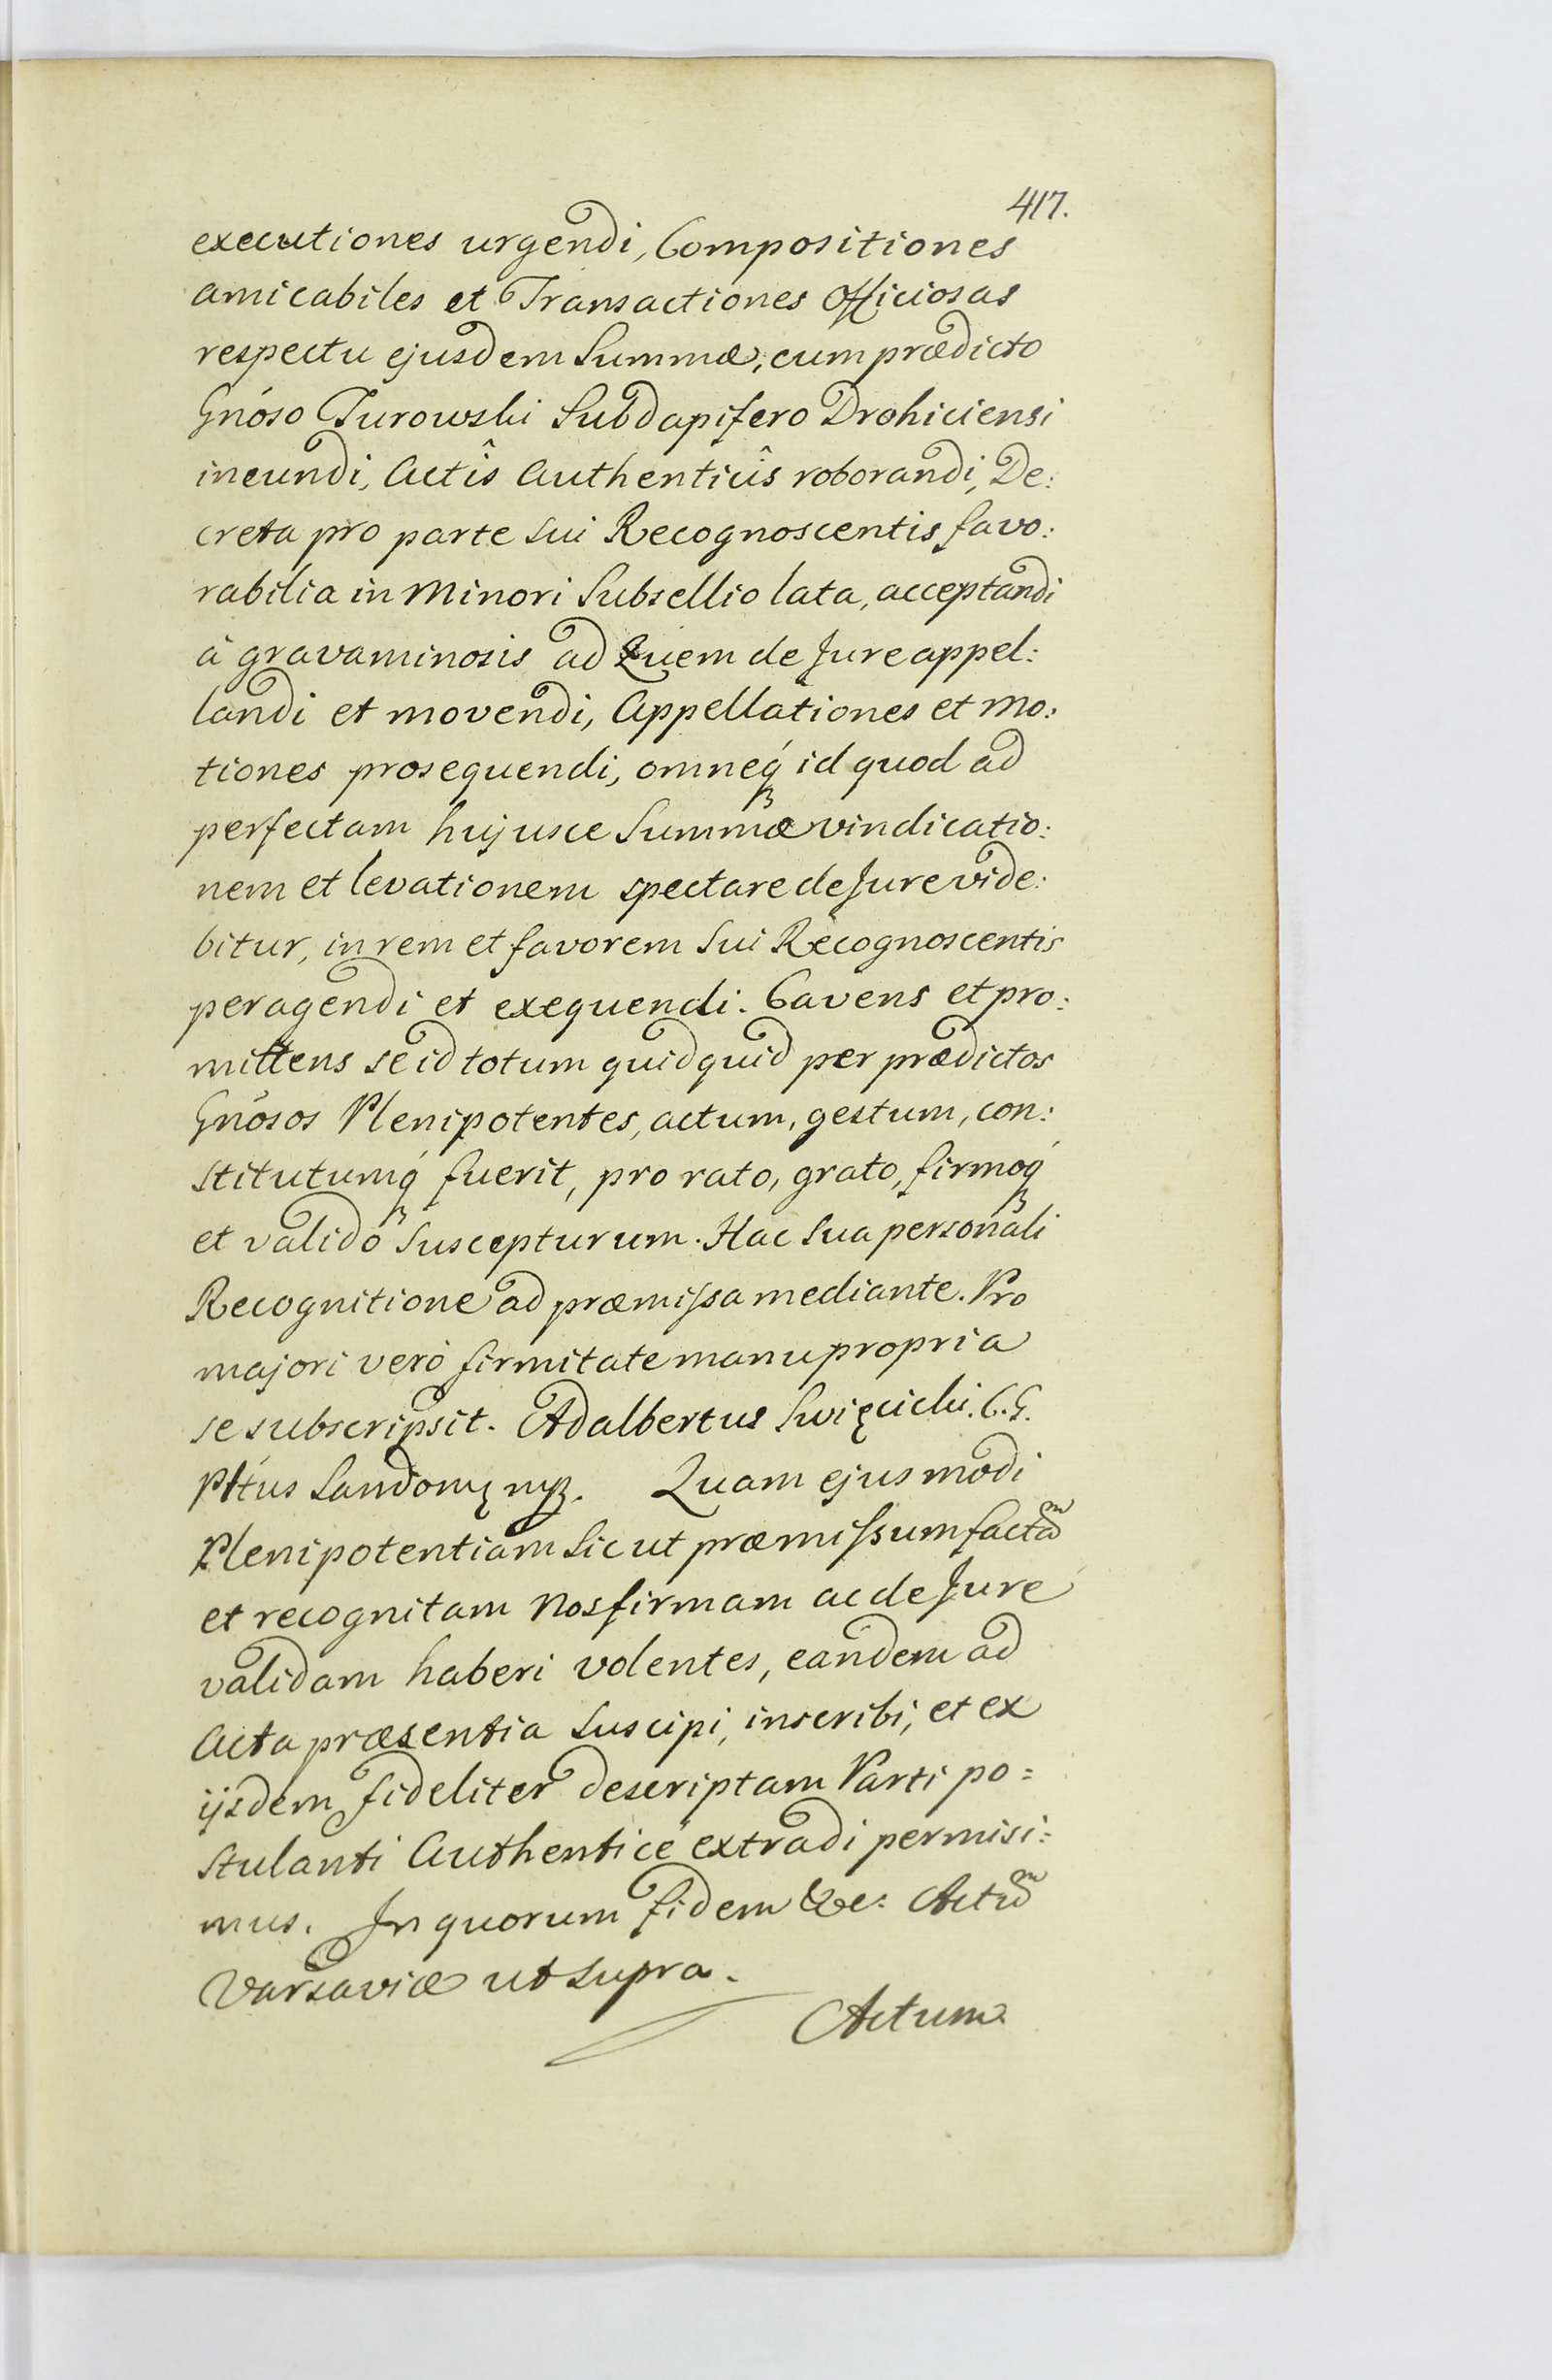 417.
executiones urgendi, Compositiones
amicabiles et Transactiones Officiosas
respectu ejusdem Summæ, cum prædicto
Gnóso Turowski Subdapifero Drohiciensi
ineundi, Actîs Authenticîs roborandi, De:
creta pro parte sui Recognoscentis favo:
rabilia in Minori Subsellio lata, acceptandi
à gravaminosis ad Quem de Jure appel:
landi et movendi, Appellationes et Mo:
tiones prosequendi, omneq́ȝ id quod ad
perfectam hujusce Summæ vindicatio:
nem et levationem spectare de Jure vide:
bitur, in rem et favorem Sui Recognoscentis
peragendi et exequendi. Cavens et pro:
mittens se id totum quidquid per prædictos
Gnósos Plenipotentes, actum, gestum, con:
stitutumq́ȝ fuerit, pro rato, grato, firmoq́ȝ
et valido suscepturum. Hac Sua personali
Recognitione ad præmissa mediante. Pro
majori verò firmitate manu propria
se subscripsit. Adalbertus Swięcicki. C.G.
Quam ejusmodi
Plenipotentiam Sicut præmissum factã
et recognitam Nos firmam ac de Jure
validam haberi volentes, eandem ad
Acta præsentia Suscipi, inscribi, et ex
ijsdem fideliter descriptam Parti po=
stulanti Authenticè extradi permisi=
mus. In quorum fidem &c: Actũ
Varsaviæ ut supra.
Actum